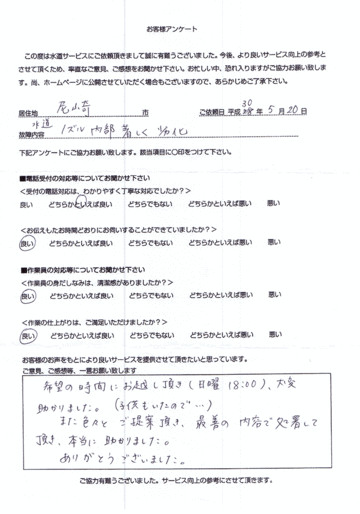 お客様アンケート
この度は水道サービスにご依頼頂きまして誠に有難うございました。今後、より良いサービス向上の参考と
させて頂くため、率直なご意見、ご感想をお聞かせ下さい。お忙しい中、恐れ入りますがご協力お願い致しま
す。尚、ホームページに公開させていただく場合もございますので、あらかじめご了承下さい。
居住地 尼崎 市 ご依頼日 平成 30 年 5 月 20 日
水道
故障内容 ノズル内部著しく劣化
下記アンケートにご協力お願い致します。該当項目に〇印をつけて下さい。
■電話受付の対応等についてお聞かせ下さい
<受付の電話対応は、わかりやすく丁寧な対応でしたか?>
良い どちらかといえば良い どちらでもない どちらかといえば悪い 悪い
<お伝えしたお時間どおりにお伺いすることができていましたか?>
良い どちらかといえば良い どちらでもない どちらかといえば悪い 悪い
■作業員の対応等についてお聞かせ下さい
<作業員の身だしなみは、清潔感がありましたか?>
良い どちらかといえば良い どちらでもない どちらかといえば悪い 悪い
<作業の仕上がりは、ご満足いただけましたか?>
良い どちらかといえば良い どちらでもない どちらかといえば悪い 悪い
お客様のお声をもとにより良いサービスを提供させて頂きたいと思っています。
ご意見、ご感想等、一言お願い致します
希望の時間にお越し頂き(日曜18:00)、大変
助かりました。(子供もいたので…)
また色々とご提案頂き、最善の内容で処置して
頂き、本当に助かりました。
ありがとうございました。
ご協力有難うございました。サービス向上の参考にさせて頂きます。